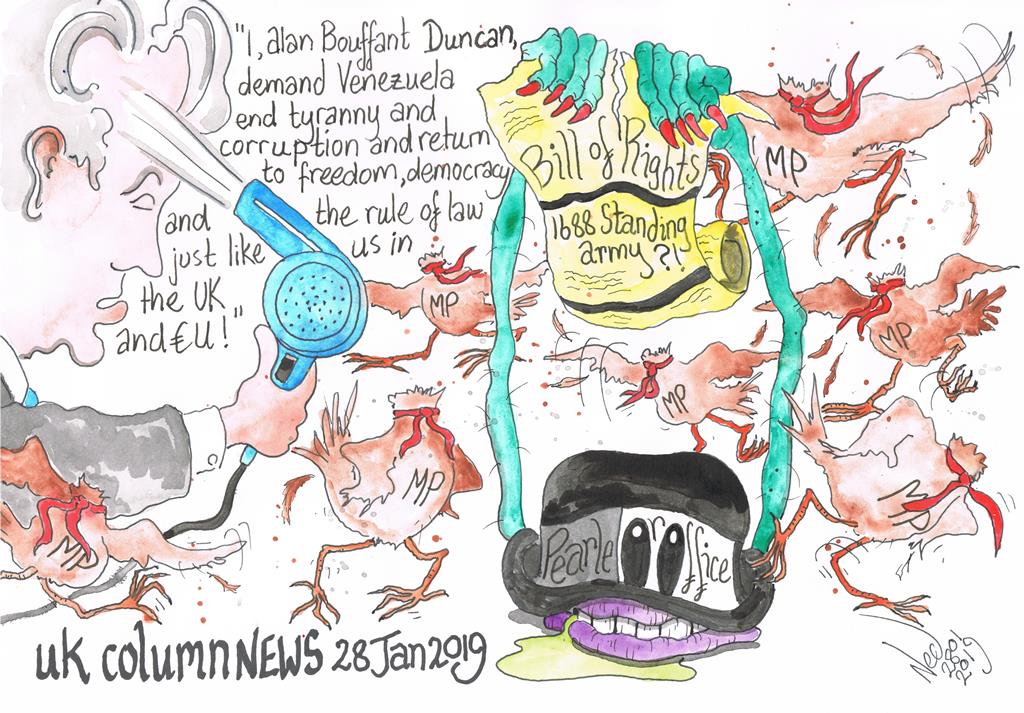 "I, alan Bouffant Duncan,
demand Venezuela
end tyranny and
corruption and return
to freedom, democracy
and the rule of law
just like us in
the UK
and €U!"
Bill of Rights
1688 Standing
army ?!
MP
MP
MP
MP
MP
MP
MP
Pearle Or Office
uk column NEWS 28 Jan 2019
2019